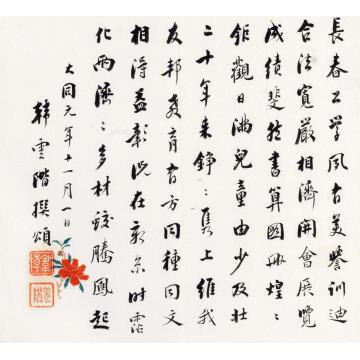 長春工學夙古美譽訓迪
合法寬嚴相濟開會展覽
成績斐然書算圖冊煌〻
鉅觀日滿兒童由少及壯
二十年來錚〻雋上維我
友邦教育有方同種同文
相得益彰況在新京時霑
化雨濟〻多材蛟騰鳳起
大同元年十一月一日
韓雲階撰頌